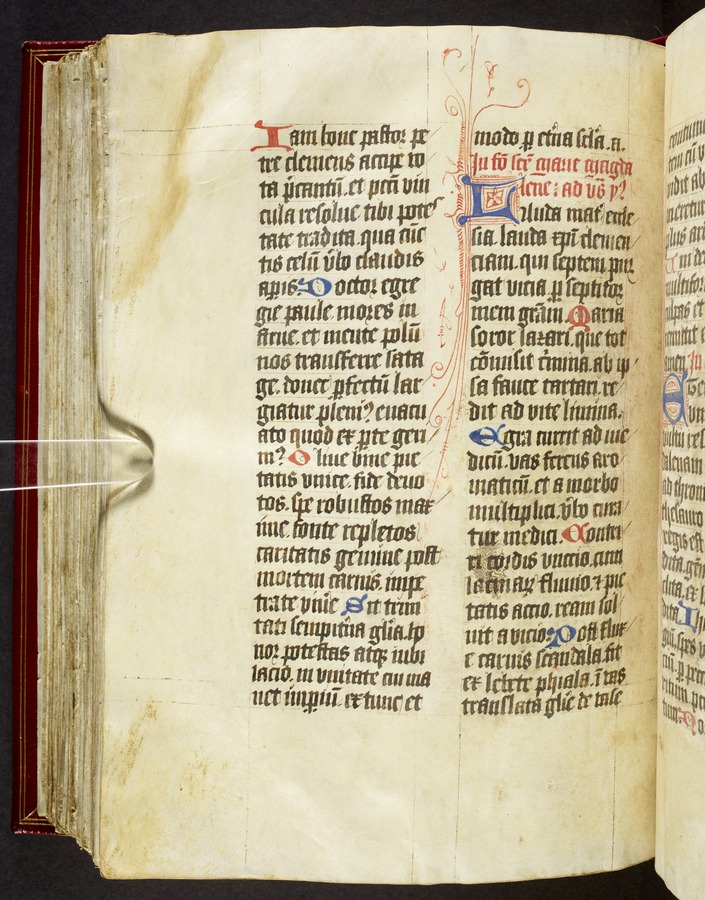 Iam bone pastor pe
tre clemens accipe vo
ta p̄cantū. et pcc̄i vin
cula resolue tibi potes
tate tradita. qua cūc
tis celū v̄bo claudis
apis. Doctor egre
gie paule mores in
strue. et mente polū
nos transferre sata
ge. donec ꝑfectū lar
giatur pleniꝰ euacu
ato quod ex ꝑte geri
mꝰ Oliue bine pie
tatis vnice. fide deuo
tos. spe robustos max
ime. fonte repletos
caritatis gemine post
mortem carnis. impe
trate viuē Sit trini
tati sempit̄na gl̄ia. ho
nor. potestas atqꝫ iubi
lacio. in vnitate cui ma
net imꝑiū. ex tunc et
modo. ꝑ et̄na sc̄la. a.
In fō scē marie magda
lene: ad vꝰ̄ yꝰ
Lauda mat̄ eccle
sia. lauda xp̄i clemen
ciam. qui septem pur
gat vicia. ꝑ septifor
mem gr̄am. Maria
soror lazari. que tot
cōmisit crīmina. ab ip
sa fauce tartari. re
dit ad vite limina.
Egra currit ad me
dicū. vas ferens aro
maticū. et a morbo
multiplici. v̄bo cura
tur medici. Contri
ti cordis vnctio. cum
lacrimaꝝ fluuio. ⁊ pie
tatis actio. ream sol
uit a vicio. Post flux
e carnis scandala. fit
ex lebete phiala. ī vas
translata gl̄ie de vase